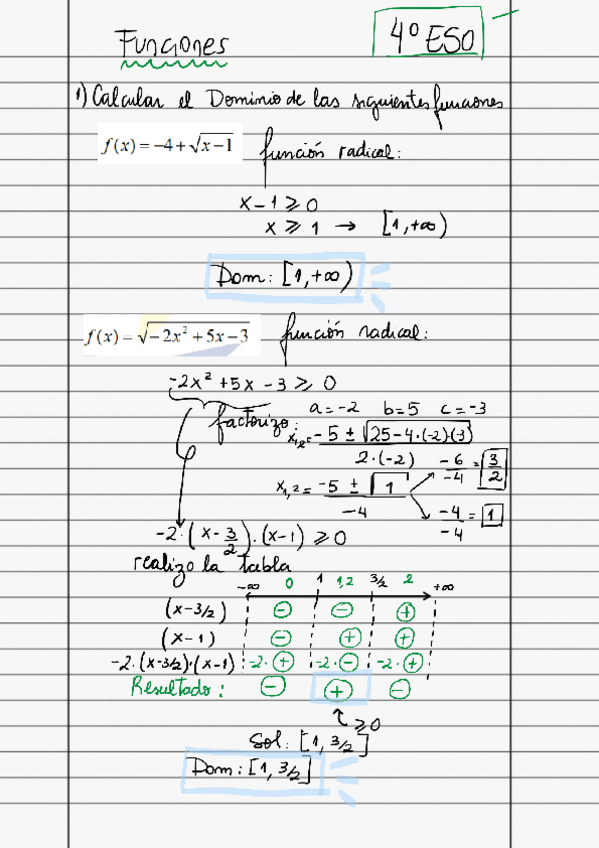 Funciones
4º ESO
1) Calcular el Dominio de las siguientes funciones
f(x) = -4 + √x-1 función radical:
x - 1 ⩾ 0
x ⩾ 1 → [1, +∞)
Dom: [1, +∞)
f(x) = √-2x² + 5x - 3 función radical:
-2x² + 5x - 3 ⩾ 0
factorizo: a = -2 b = 5 c = -3
x₁,₂ = -5 ± √25-4·(-2)(-3) / 2·(-2)
x₁,₂ = -5 ± √1 / -4
-6/-4 = 3/2
-4/-4 = 1
-2·(x - 3/2)·(x-1) ⩾ 0
realizo la tabla
-∞ 0 1 1,2 3/2 2 +∞
(x-3/2) - - +
(x-1) - + +
-2·(x-3/2)·(x-1) -2·+ -2·- -2·+
Resultado: - + -
⩾0
Sol: [1, 3/2]
Dom: [1, 3/2]